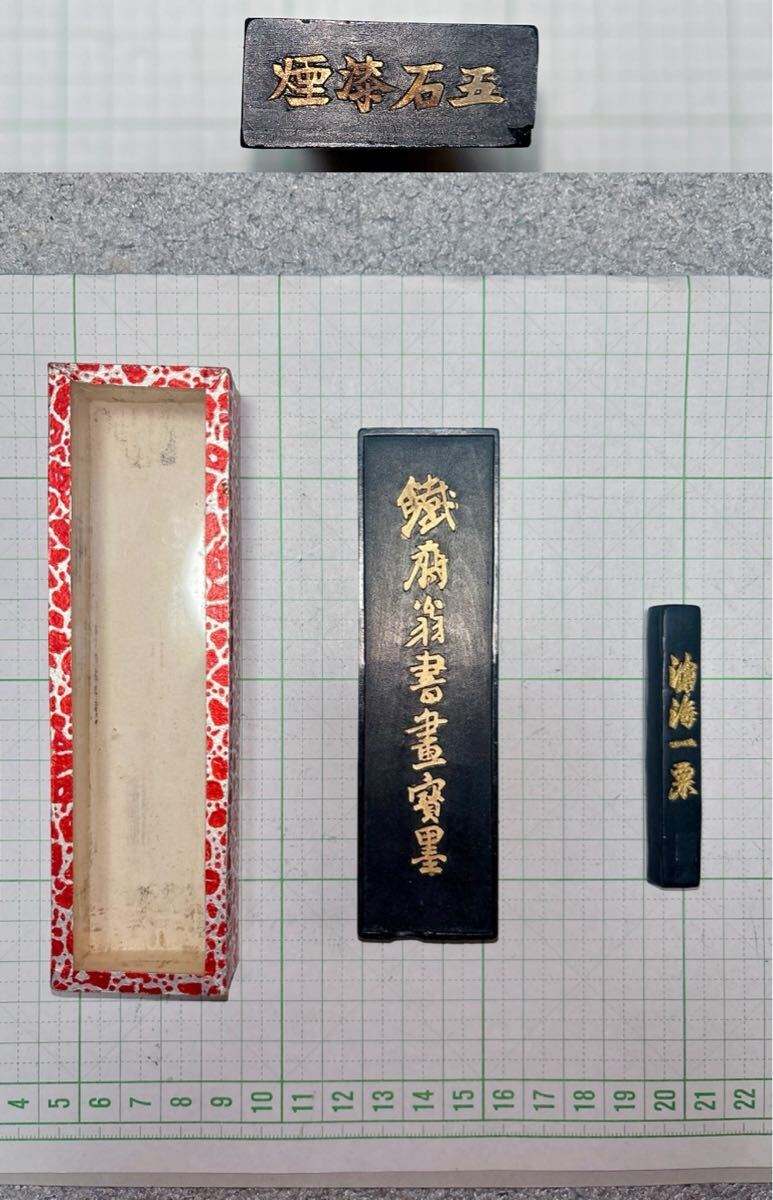 五石漆煙
鐵齋翁書畫寳墨
滄海一粟
4 5 6 7 8 9 10 11 12 13 14 15 16 17 18 19 20 21 22